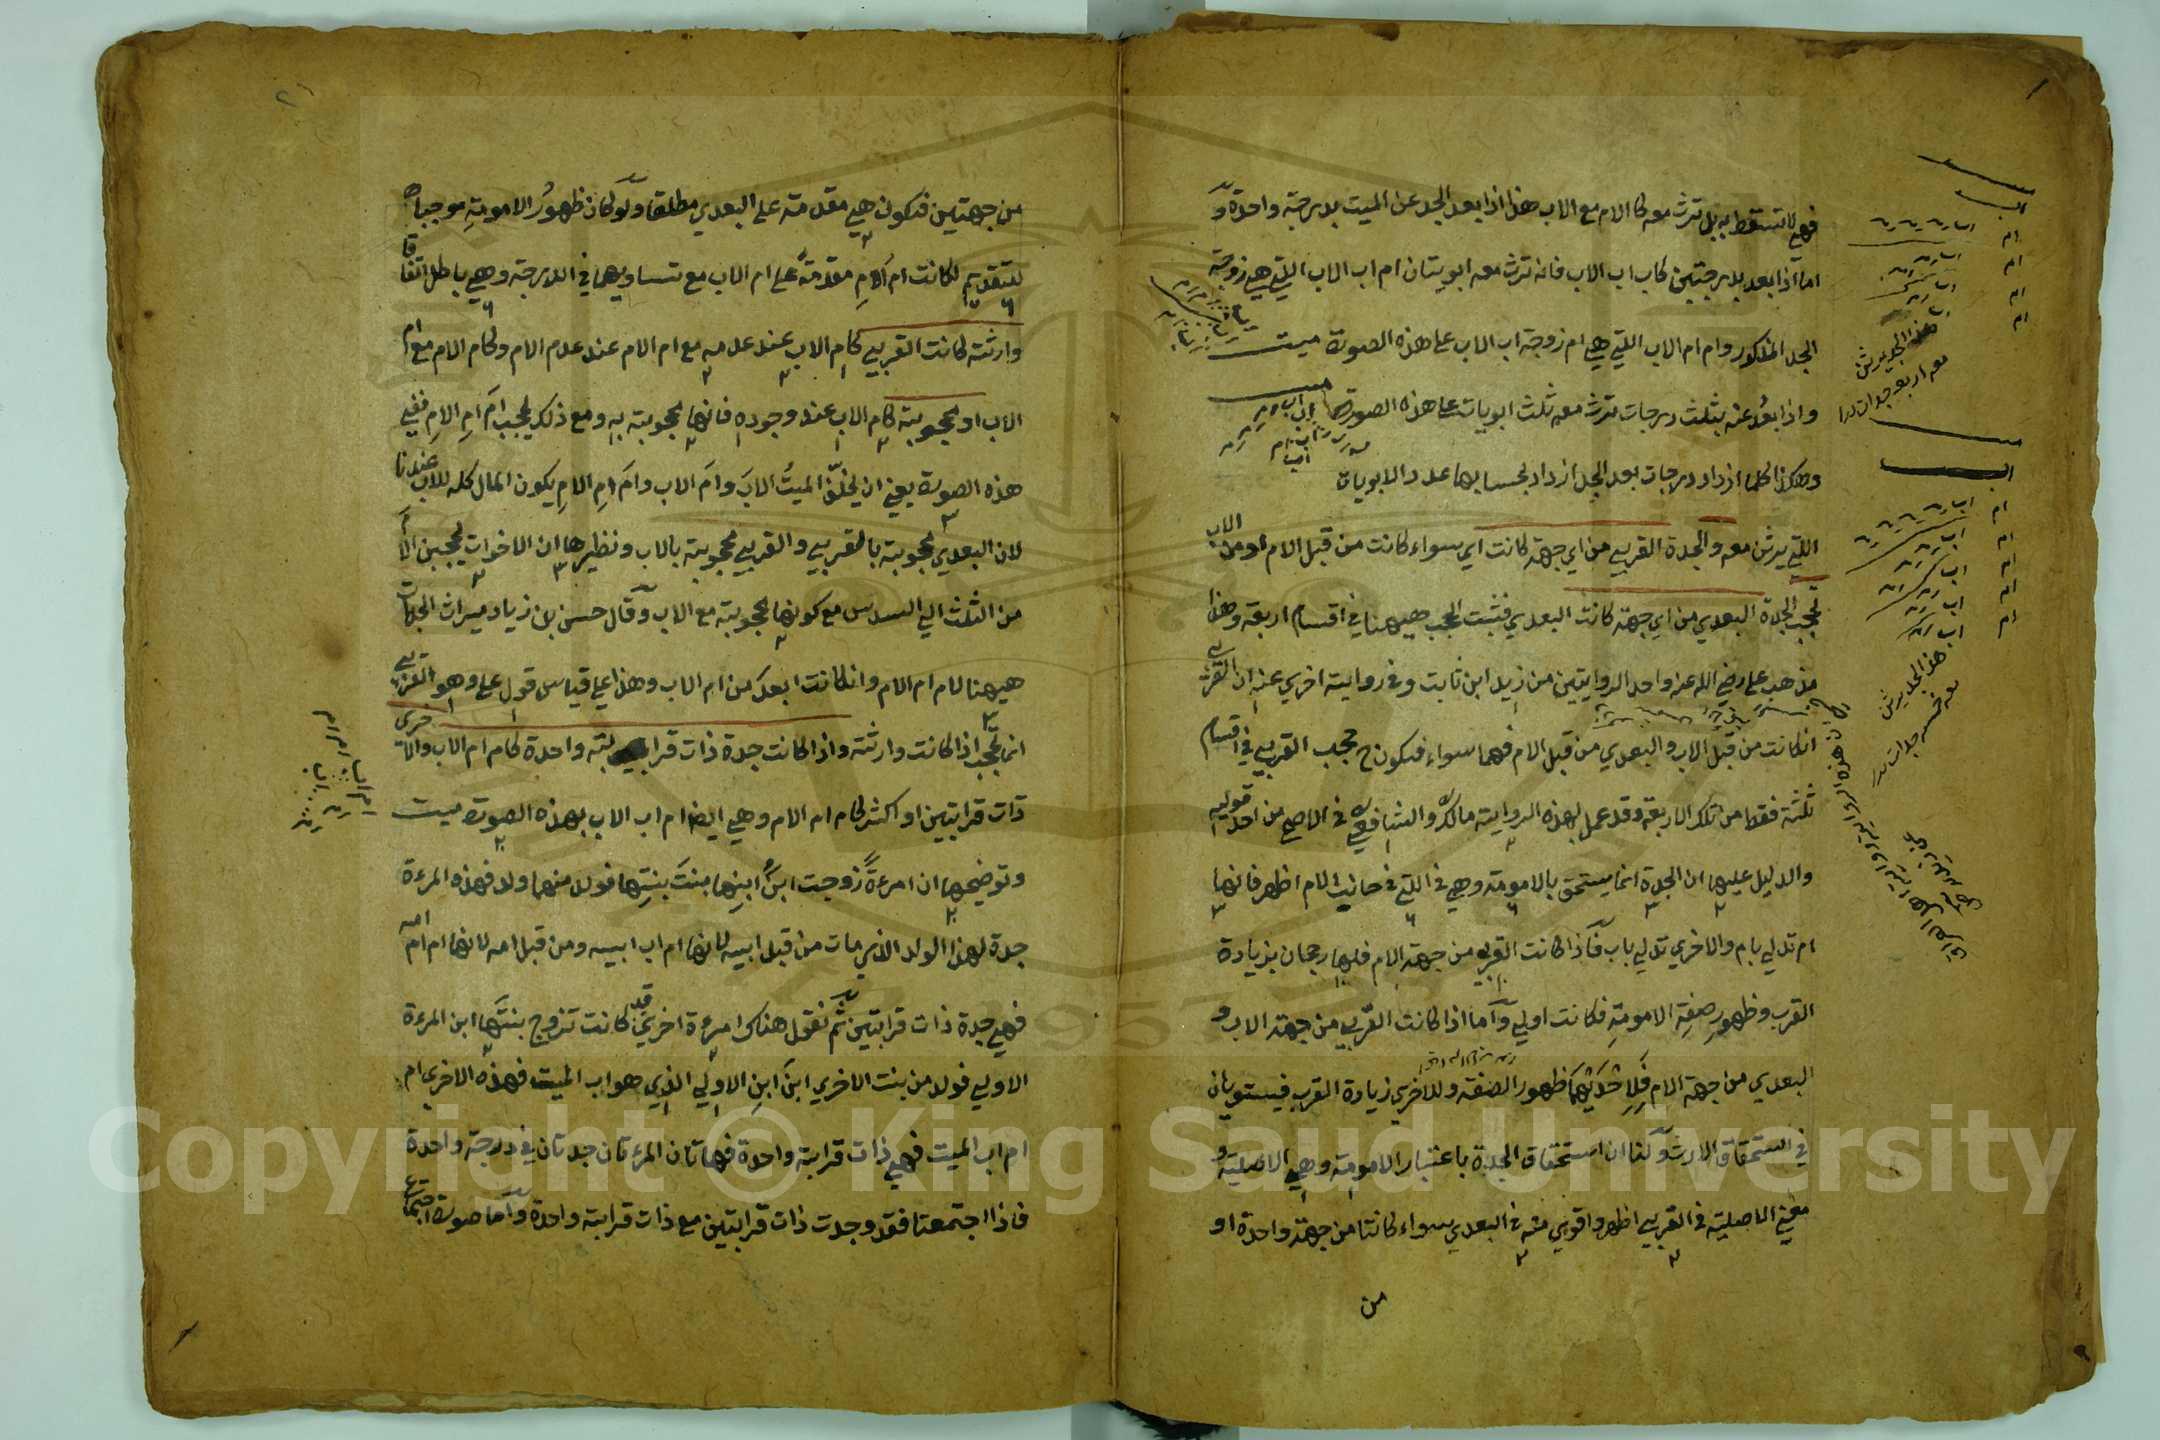 فهي لا تسقط به بل ترث معه كالام مع الاب هذا اذا بعد الجد عن الميت بدرجة واحدة و
اما اذا بعد بدرجتين كاب اب الاب فانه ترث معه ابويتان ام اب الاب اللتي هي زوجة
الجد المذكور وام ام الاب اللتي هي ام زوجة اب الاب علي هذه الصورة ميت
واذا بعد عنه بثلث درجات ترث معه ثلث ابويات علي هذه الصورة
وهكذا كلما ازداد درجات بعد الجد ازداد بحسابها عدد الابويات
اللتي يرثن معه والجدة القربي من اي جهة كانت اي سواء كانت من قبل الام او من الاب
تحجب الجدة البعدي من اي جهة كانت البعدي فثبت الحجب هيهنا في اقسام اربعة وهذا
مذهب علي رضي الله عنه واحد الروايتين من زيد ابن ثابت وفي رواية اخري عنه ان القربي
انكانت من قبل الاب والبعدي من قبل الام فهما سواء فيكون ح حجب القربي في اقسام
ثلثة فقط من تلك الاربعة وقد عمل بهذه الرواية مالك والشافعي في الاصح من احد قوليه
والدليل عليها ان الجدة انما يستحق بالامومة وهي في اللتي في جانب الام اظهر فانها
ام تدلي بام والاخري تدلي باب فاذا كانت القربي من جهة الام فلها رجحان بزيادة
القرب وظهور صفة الامومة فكانت اولي واما اذا كانت القربي من جهة الاب و
البعدي من جهة الام فلاحديهما ظهور الصفة وللاخري زيادة القرب فيستويان
في استحقاق الارث ولنا ان استحقاق الجدة باعتبار الامومة وهي الاصلية و
معني الاصلية في القربي اظهر واقوي منه في البعدي سواء كانتا من جهة واحدة او
من
هذا الجد يرثن
معه اربع جدات
هذا الجد يرثن
معه خمسة جدات
من جهتين فيكون هي مقدمة علي البعدي مطلقا ولو كان ظهور الامومة موجبا
للتقديم لكانت ام الام مقدمة علي ام الاب مع تساويهما في الدرجة وهي باطل اتفاقا
وارثة كانت القربي كام الاب عند عدمه مع ام الام عند عدم الام وكام الام مع ام
الاب او محجوبة كام الاب عند وجوده فانها محجوبة به ومع ذلك يحجب ام ام الام ففي
هذه الصورة يعني ان يخلف الميت الاب وام الاب وام ام الام يكون المال كله للاب عندنا
لان البعدي محجوبة بالقربي والقربي محجوبة بالاب ونظيرها ان الاخوات يحجبن الام
من الثلث الي السدس مع كونها محجوبة مع الاب وقال حسن بن زياد ميراث الجدات
هيهنا لام ام الام وانكانت ابعد من ام الاب وهذا علي قياس قول علي وهو القربي
انما تحجب اذا كانت وارثة واذا كانت جدة ذات قرابة واحدة كام ام الاب والاخري
ذات قرابتين او اكثر كام ام الام وهي ايضا ام اب الاب بهذه الصورة ميت
وتوضيحها ان امرءة زوجت ابن ابنها بنت بنتها فولد منهما ولد فهذه المرءة
جدة لهذا الولد الذي مات من قبل ابيه لانها ام اب ابيه ومن قبل امه لانها ام ام امه
فهي جدة ذات قرابتين ثم نقول هناك امرءة اخري قد كانت تزوج بنتها ابن المرءة
الاولي فولد من بنت الاخري ابن ابن الاولي الذي هو اب الميت فهذه الاخري ام
ام اب الميت فهي ذات قرابة واحدة فهاتان المرءتان جدتان في درجة واحدة
فاذا اجتمعتا فقد وجدت ذات قرابتين مع ذات قرابة واحدة واما صورة اجتماع
Copyright © King Saud University
1957